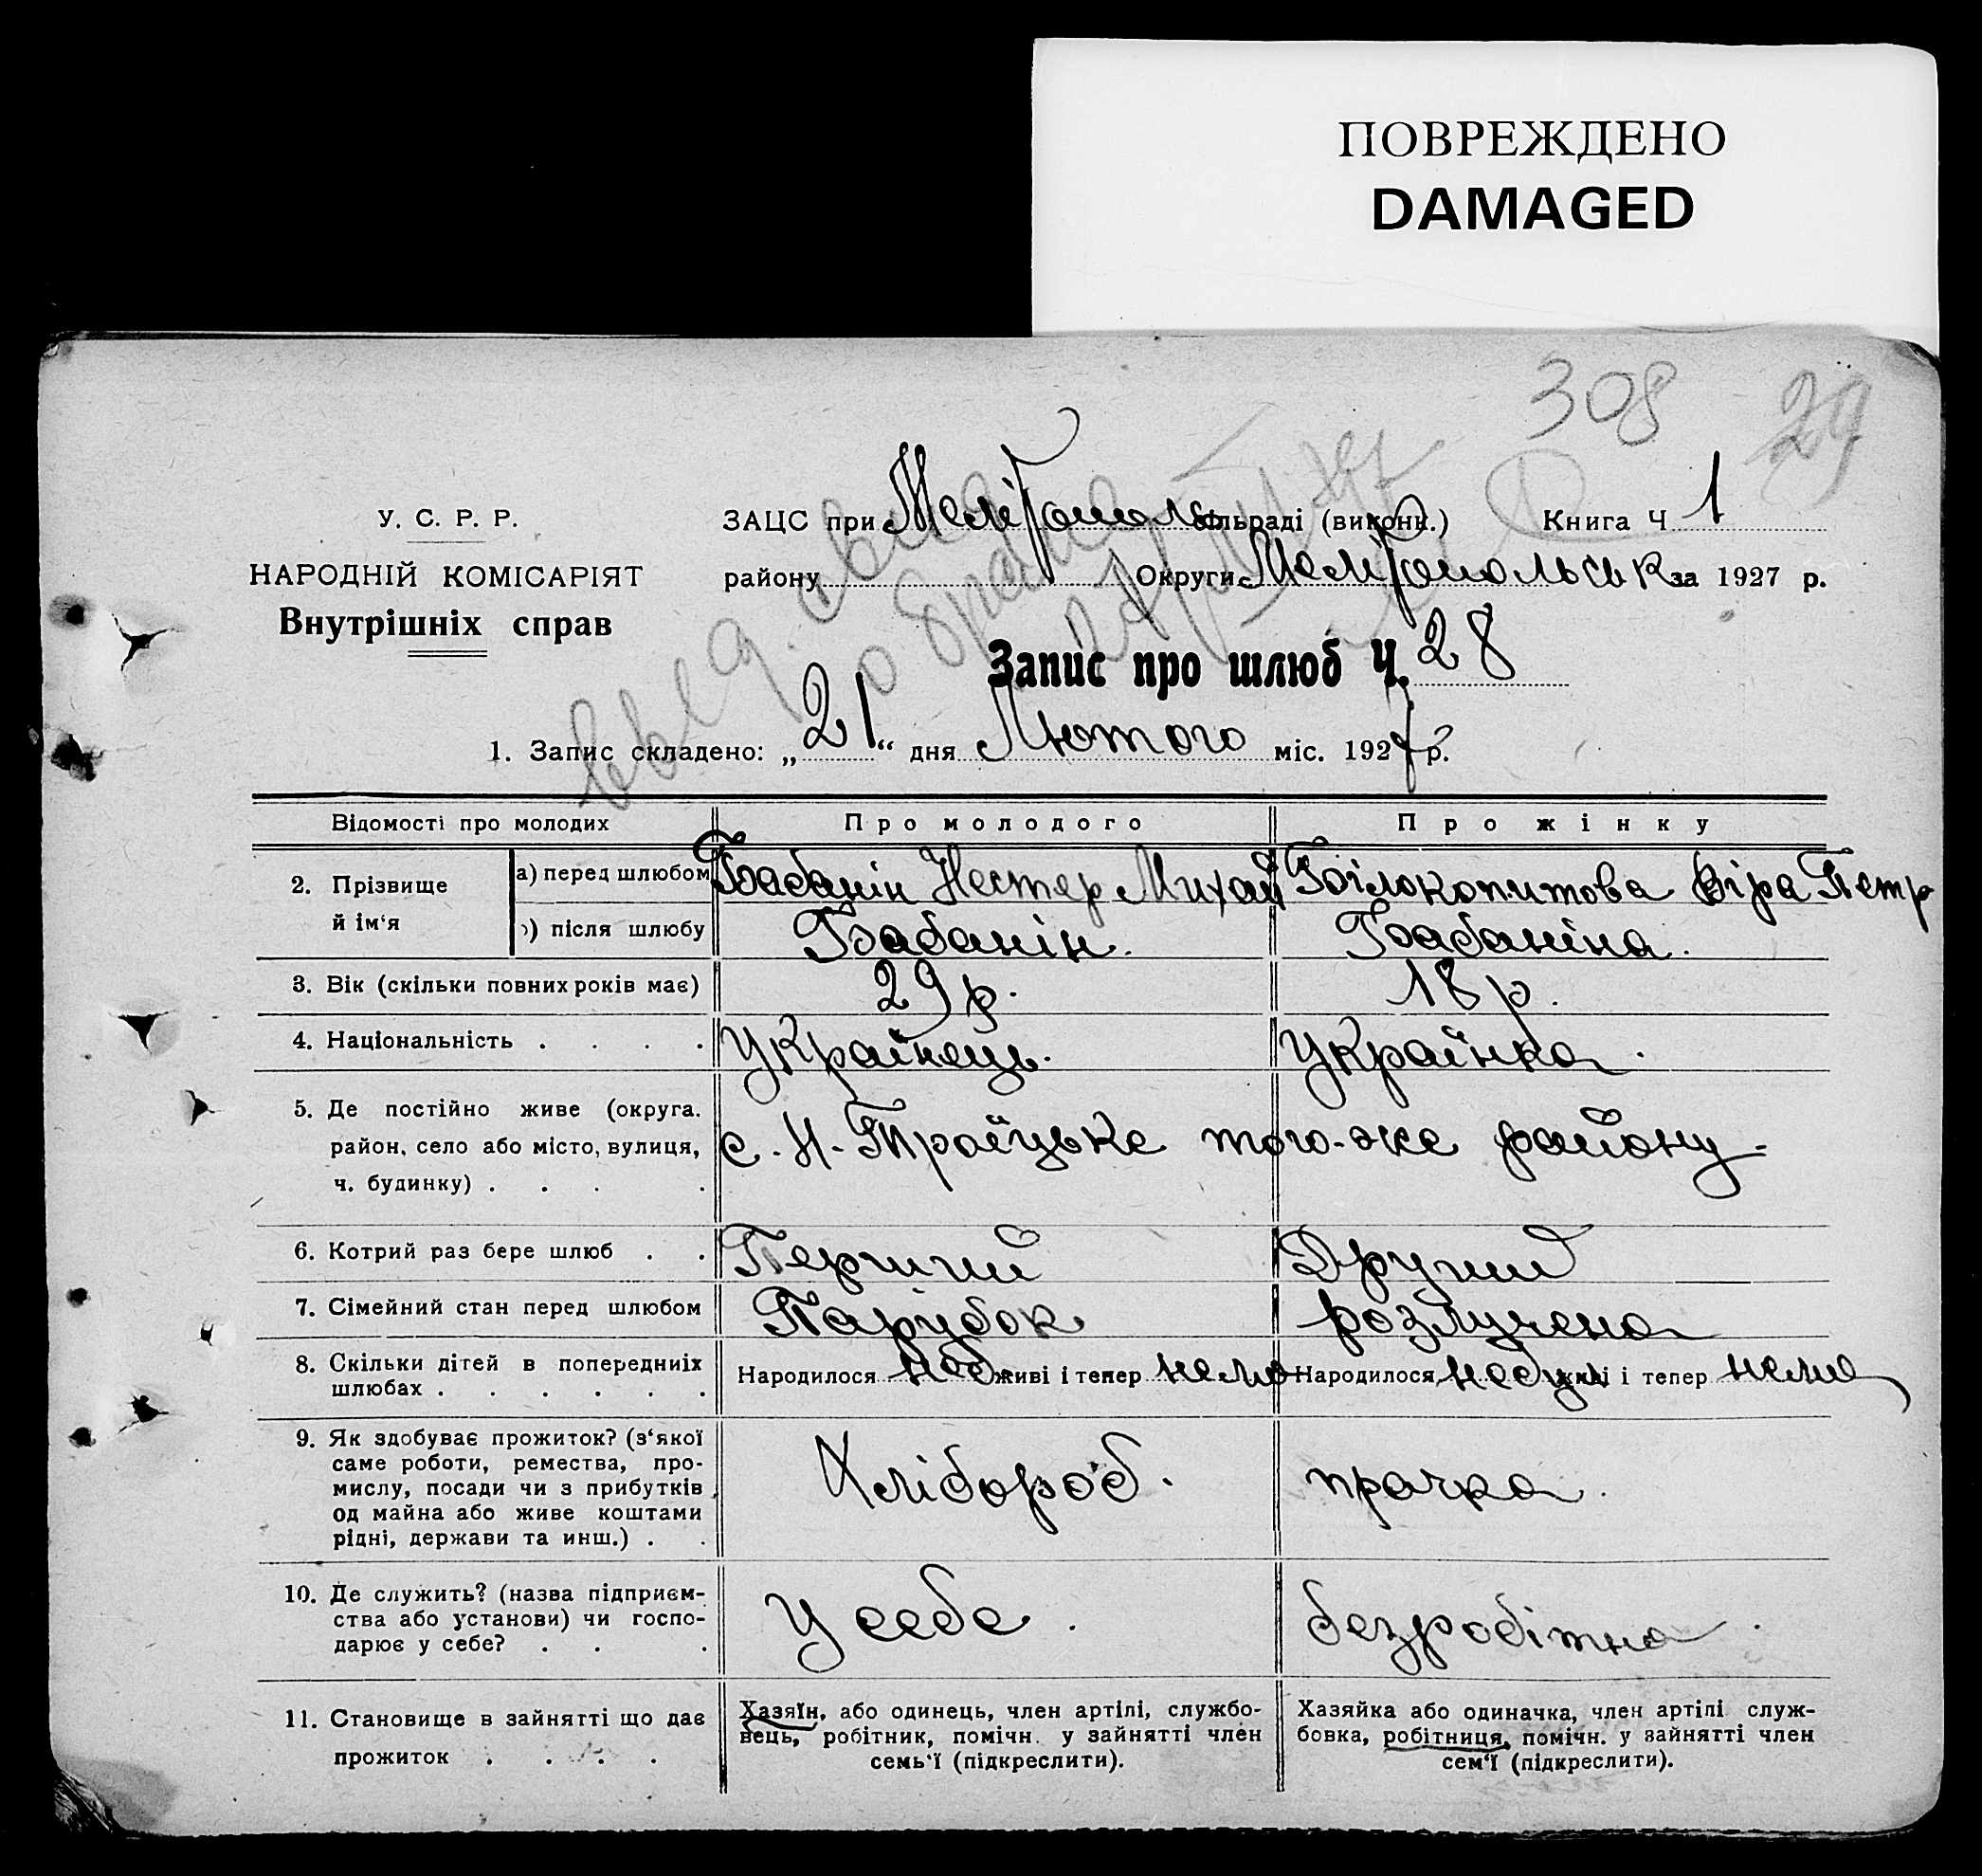 ПОВРЕЖДЕНО
DAMAGED
308 29
У. С. Р. Р.
НАРОДНІЙ КОМІСАРІЯТ
Внутрішніх справ
ЗАЦС при Мелітополь сільраді (виконк.) Книга Ч 1
району Округи Мелітопольськ за 1927 р.
Запис про шлюб Ч. 28
1. Запис складено: „21“ дня Лютого міс. 1927 р.
Відомості про молодих Про молодого Про жінку
2. Прізвище й ім‘я
а) перед шлюбом Бабанін Нестер Михай Білокопитова Віра Петр
) після шлюбу Бабанін. Бабаніна.
3. Вік (скільки повних років має) 29 р. 18 р.
4. Національність . . . . Українець. Українка.
5. Де постійно живе (округа.
район, село або місто, вулиця,
ч. будинку) . . . .
с. Н.-Троїцьке того-же району
6. Котрий раз бере шлюб . . Перший Другий
7. Сімейний стан перед шлюбом Парубок розлучена
8. Скільки дітей в попередниіх
шлюбах . . . . . .
Народилося живі і тепер нема Народилося небули живі і тепер нема
9. Як здобуває прожиток? (з‘якої
саме роботи, ремества, про-
мислу, посади чи з прибутків
од майна або живе коштами
рідні, держави та инш.) . .
Хлібороб. прачка.
10. Де служить? (назва підприєм-
ства або установи) чи госпо-
дарює у себе? . . .
У себе. безробітна.
11. Становище в зайнятті що дає
прожиток . . . .
Хазяїн, або одинець, член артілі, службо-
вець, робітник, помічн. у зайнятті член
семь‘ї (підкреслити).
Хазяйка або одиначка, член артілі служ-
бовка, робітниця, помічн. у зайнятті член
сем‘ї (підкреслити).